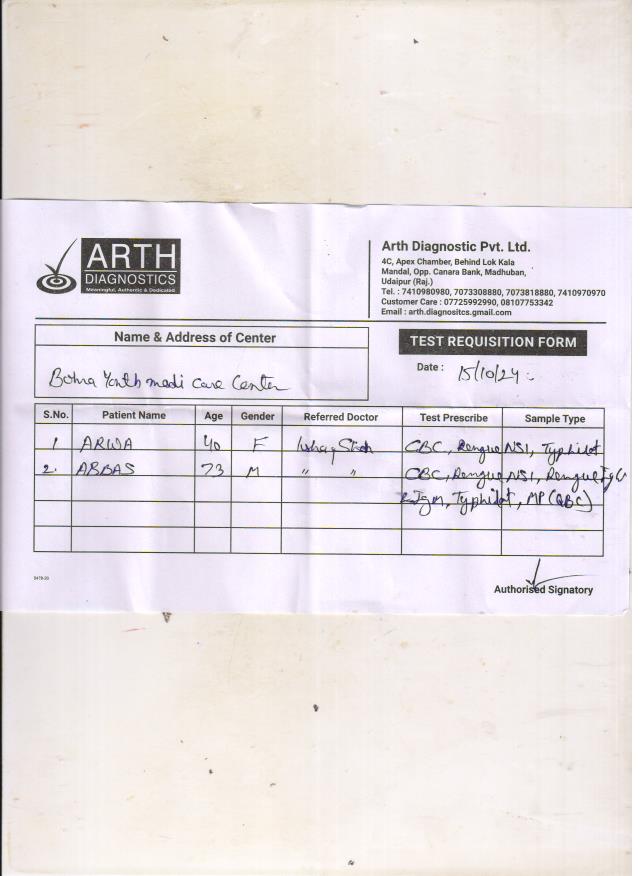 ARTH
DIAGNOSTICS
Meaningful, Authentic & Dedicated
Arth Diagnostic Pvt. Ltd.
4C, Apex Chamber, Behind Lok Kala
Mandal, Opp. Canara Bank, Madhuban,
Udaipur (Raj.)
Tel. : 7410980980, 7073308880, 7073818880, 7410970970
Customer Care : 07725992990, 08107753342
Email : arth.diagnositcs.gmail.com
Name & Address of Center
TEST REQUISITION FORM
Bohra Youth medi care Center
Date : 15/10/24
S.No. Patient Name Age Gender Referred Doctor Test Prescribe Sample Type
1 ARWA 40 F CBC, Dengue NS1, Typhidot
2. ABBAS 73 M " " CBC, Dengue NS1, Dengue IgG
& IgM, Typhidot, MP (QBC)
Authorised Signatory